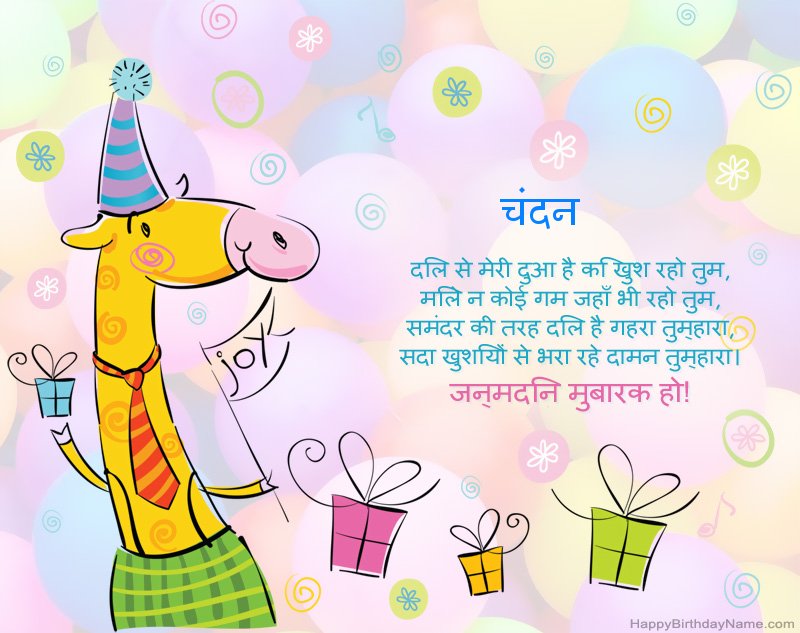 चंदन
दलि से मेरी दुआ है कि खुश रहो तुम,
मलिे न कोई गम जहाँ भी रहो तुम,
समंदर की तरह दलि है गहरा तुम्हारा,
सदा खुशयिों से भरा रहे दामन तुम्हारा।
जन्मदनि मुबारक हो!
joy
HappyBirthdayName.com